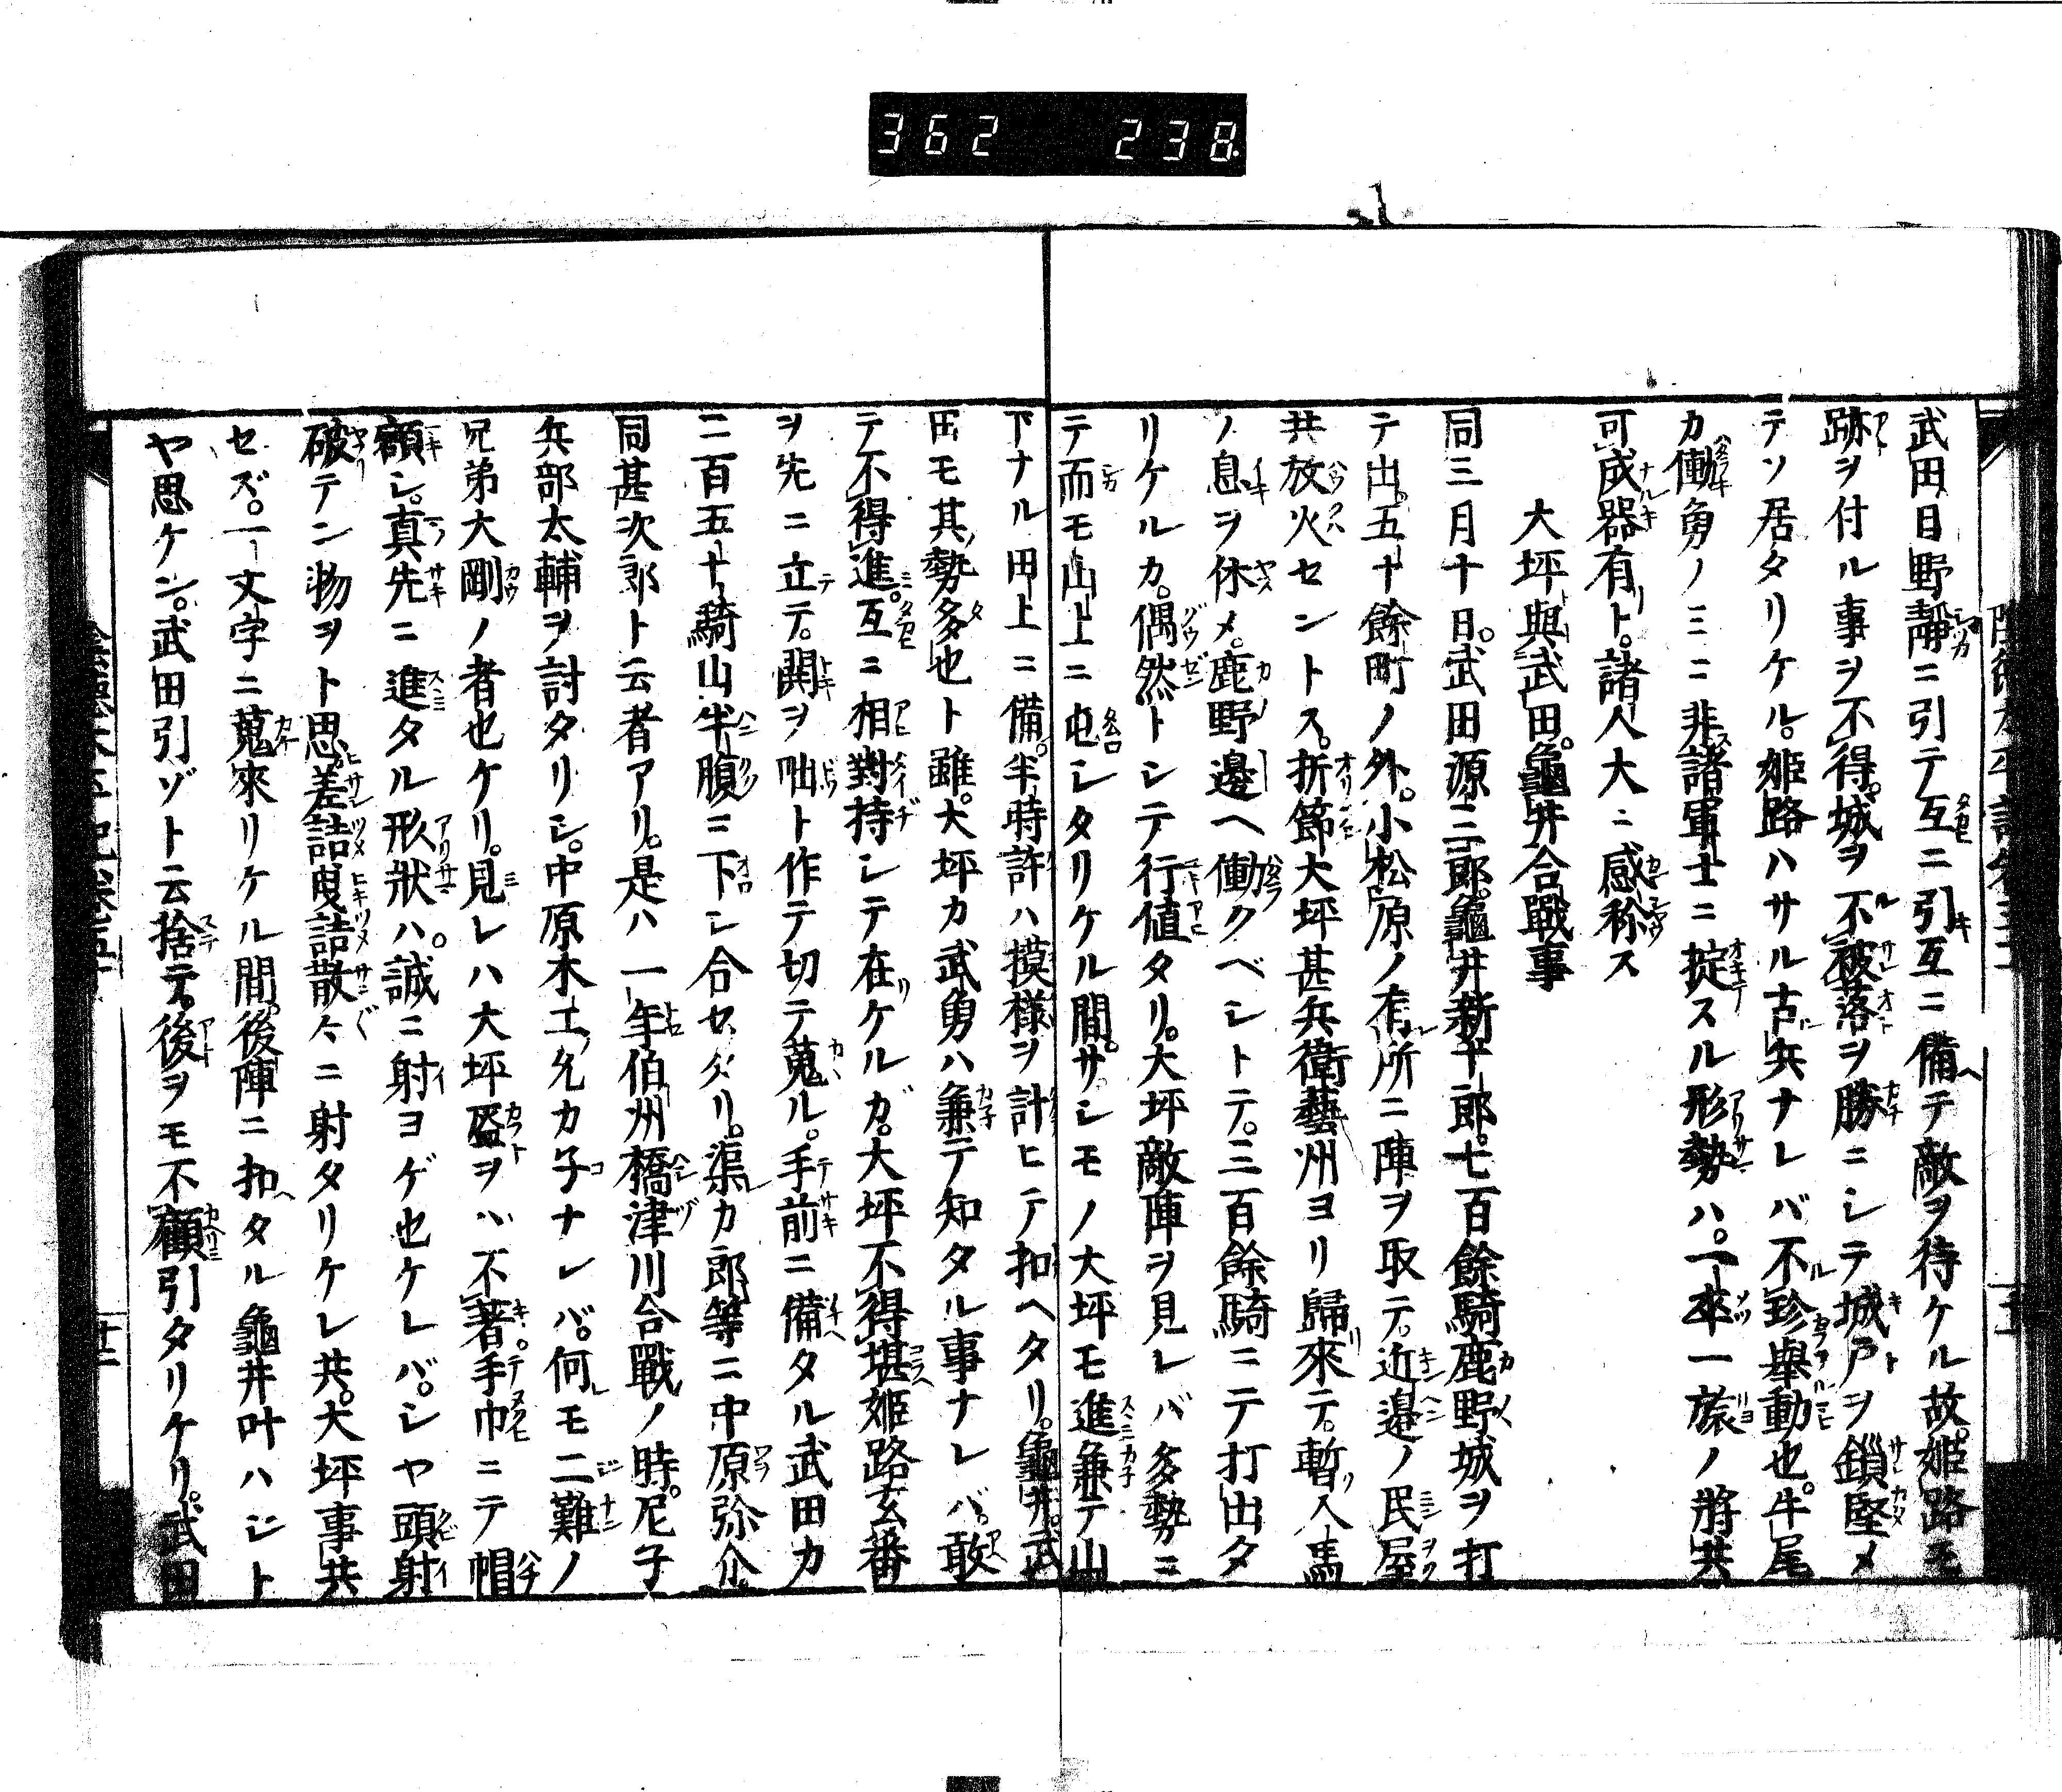 362 238
武田日野靜ニ引テ互ニ引互ニ備テ敵ヲ待ケル故。姫路モ
跡ヲ付ル事ヲ不得。城ヲ不被落ヲ勝ニシテ城戸ヲ鎖堅メ
テソ居タリケル。姫路ハサル古兵ナレバ不珍舉動也。牛尾
カ働勇ノミニ非諸軍士ニ掟スル形勢ハ。一卒一旅ノ將共
可成器有ト。諸人大ニ感称ス
大坪與武田。龜井合戰事
同三月十日。武田源三郎。龜井新十郎。七百餘騎鹿野城ヲ打
テ出。五十餘町ノ外。小松原ノ有所ニ陣ヲ取テ。近邉ノ民屋
共放火セントス。折節大坪甚兵衛藝州ヨリ歸來テ。暫人馬
ノ息ヲ休メ。鹿野邊ヘ働クベシトテ。三百餘騎ニテ打出タ
リケルカ。偶然トシテ行値タリ。大坪敵陣ヲ見レバ多勢ニ
テ而モ山上ニ屯シタリケル間。サシモノ大坪モ進兼テ山
下ナル田上ニ備。半時許ハ摸様ヲ計ヒテ扣ヘタリ。龜井。武
田モ其勢多也ト雖。大坪カ武勇ハ兼テ知タル事ナレバ。敢
テ不得進。互ニ相對持シテ在ケルガ。大坪不得堪姫路玄番
ヲ先ニ立テ。鬨ヲ咄ト作テ切テ蒐ル。手前ニ備タル武田カ
二百五十騎山半腹ニ下シ合セタリ。渠カ郎等ニ中原弥介
同甚次郎ト云者アリ。是ハ一年伯州橋津川合戰ノ時。尼子
兵部太輔ヲ討タリシ。中原木工允カ子ナレバ。何モ二難ノ
兄弟大剛ノ者也ケリ。見レハ大坪盔ヲハ不著。手巾ニテ帽
額シ。真先ニ進タル形狀ハ。誠ニ射ヨゲ也ケレバ。シヤ頭射
破テン物ヲト思。差詰曳詰散々ニ射タリケレ共。大坪事共
セズ。一文字ニ蒐來リケル間。後陣ニ扣タル龜井叶ハシト
ヤ思ケン。武田引ゾト云捨テ。後ヲモ不顧引タリケリ。武田